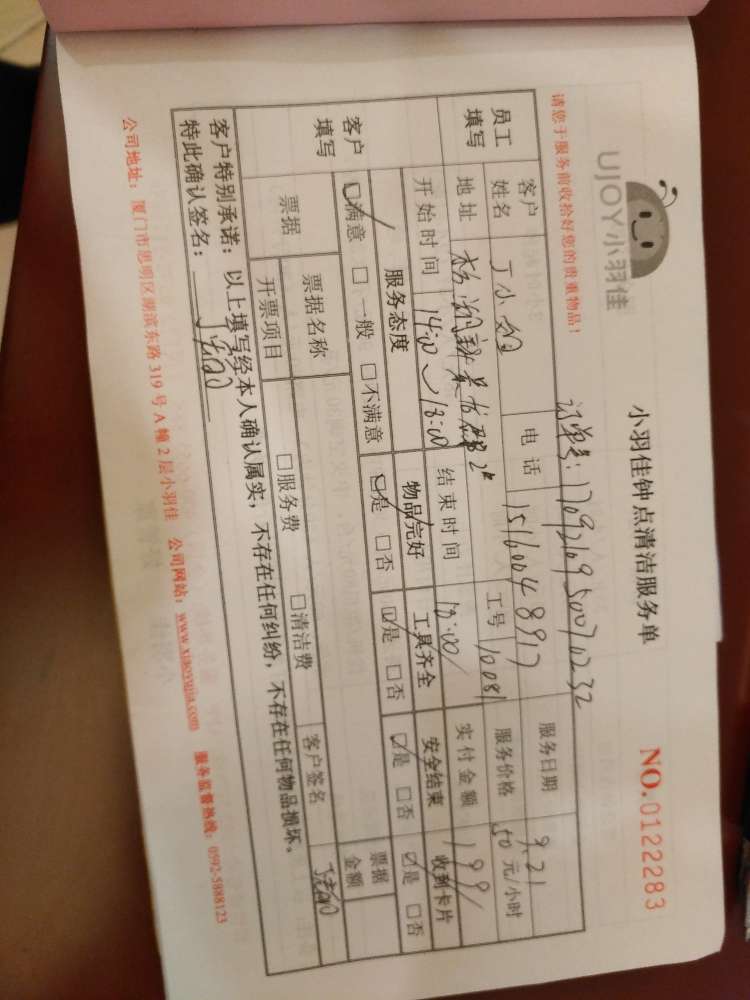 UJOY小羽佳
小羽佳钟点清洁服务单
NO.0122283
请您于服务前收拾好您的贵重物品!
订单号:
员工填写
客户姓名 丁小姐 电话 15160048917 服务日期 9.21
地址 工号 10081 服务价格 50 元/小时
开始时间 14:00~18:00 结束时间 18:00 实付金额 199
客户填写
服务态度 物品完好 工具齐全 安全结束 收到卡片
☑满意 □一般 □不满意 ☑是 □否 ☑是 □否 ☑是 □否 ☑是 □否
票据 票据名称 票据金额
开票项目 □服务费 □清洁费 客户签名
客户特别承诺:以上填写经本人确认属实,不存在任何纠纷,不存在任何物品损坏。
特此确认签名:
公司地址:厦门市思明区湖滨东路319号A幢2层小羽佳 公司网站:www.xiaoyujia.com 服务监督热线:0592-5888123